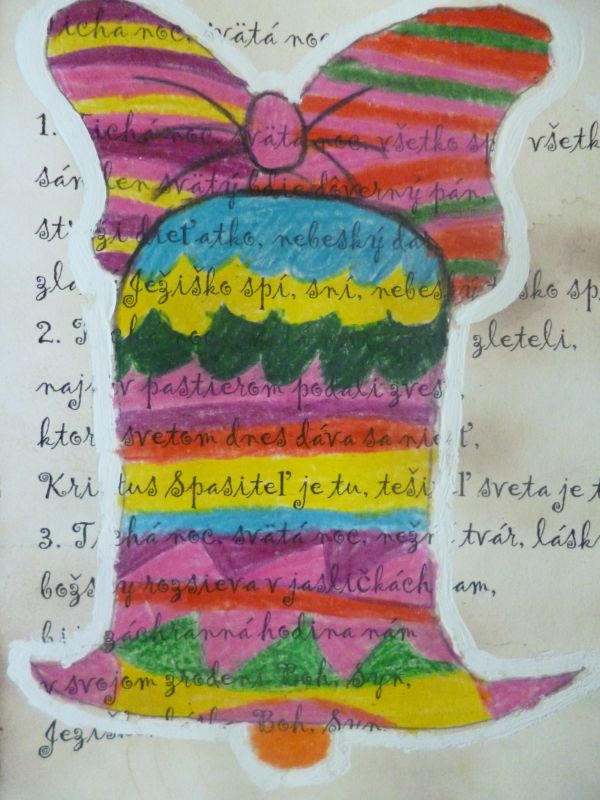 Tichá noc, svätá noc
1. Tichá noc, svätá noc, všetko spí, všetk
sám len svätý bdie dôverný pár,
stráži dieťatko, nebeský dar
Ježiško spí, sní, nebesky sp
2. noc, zleteli,
najprv pastierom podali zvesť,
ktorá svetom dnes dáva sa niesť,
Kristus Spasiteľ je tu, tešiteľ sveta je t
3. Tichá noc, svätá noc, nežná tvár, lásk
božsky rozsieva v jasličkách nam,
záchranná hodina nám
v svojom zrodení Boh, Syn,
Ježiš Boh, Syn